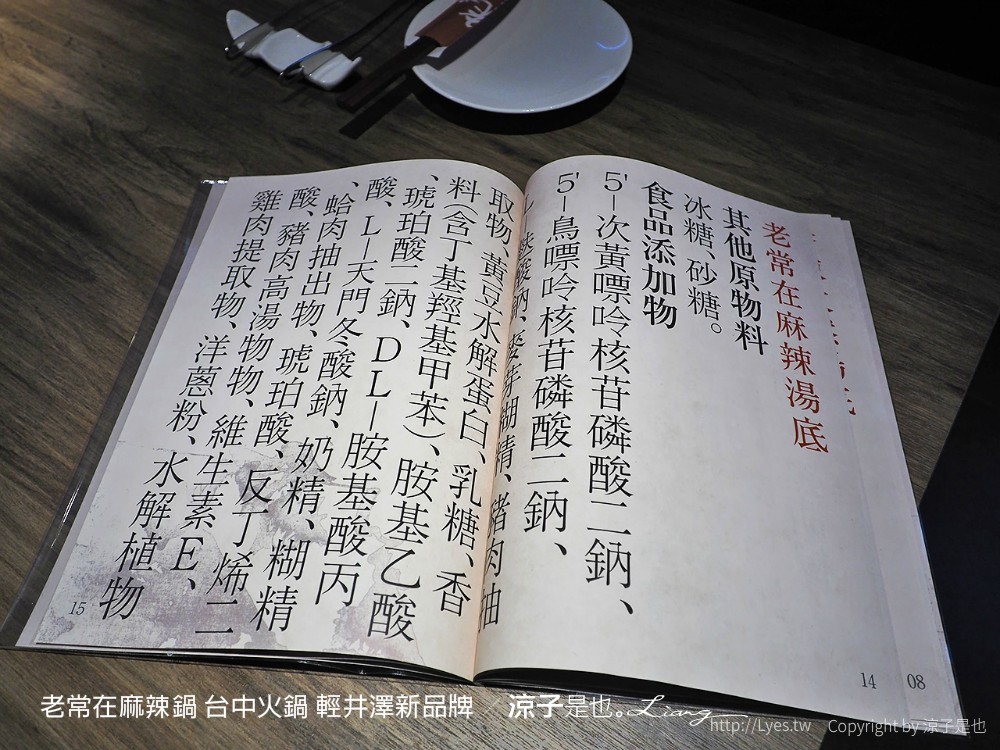 老常在麻辣湯底
其他原物料
冰糖、砂糖。
食品添加物
5'－次黃嘌呤核苷磷酸二鈉、
5'－鳥嘌呤核苷磷酸二鈉、
糊精、豬肉抽
取物、黃豆水解蛋白、乳糖、香
料（含丁基羥基甲苯）、胺基乙酸
、琥珀酸二鈉、DL－胺基酸丙
酸、L－天門冬酸鈉、奶精、糊精
、蛤肉抽出物、琥珀酸、反丁烯二
酸、豬肉高湯物物、維生素E、
雞肉提取物、洋蔥粉、水解植物
15
14
08
老常在麻辣鍋 台中火鍋 輕井澤新品牌 ／ 涼子是也。Liang
http://Lyes.tw Copyright by 涼子是也